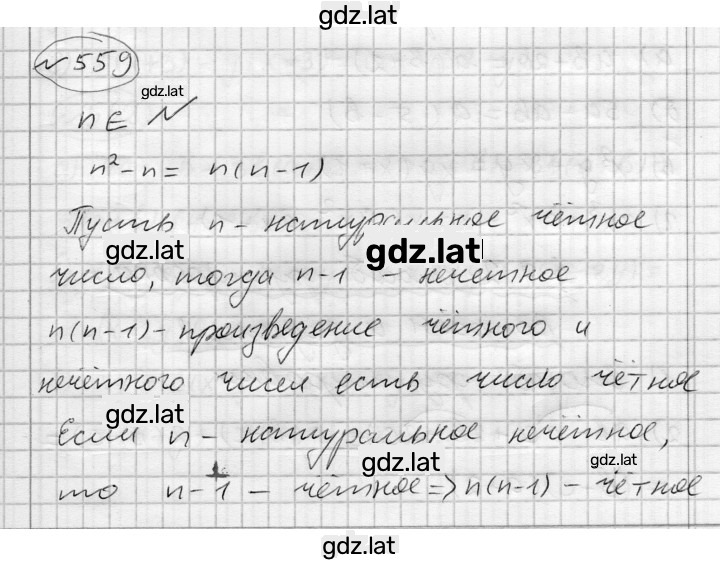 gdz.lat
№ 559
gdz.lat
n ∈ N
n² - n = n(n-1)
Пусть n - натуральное чётное
gdz.lat
gdz.lat
число, тогда n-1 - нечётное
n(n-1) - произведение чётного и
нечётного чисел есть число чётное
gdz.lat
Если n - натуральное нечётное,
gdz.lat
gdz.lat
то n-1 - чётное => n(n-1) - чётное
gdz.lat